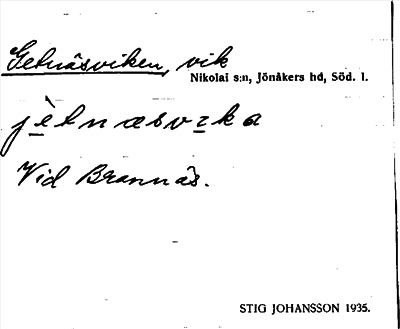 Getnäsviken, vik
Nikolai s:n, Jönåkers hd, Söd. l.
jètnæsvɩka
Vid Brannäs.
STIG JOHANSSON 1935.